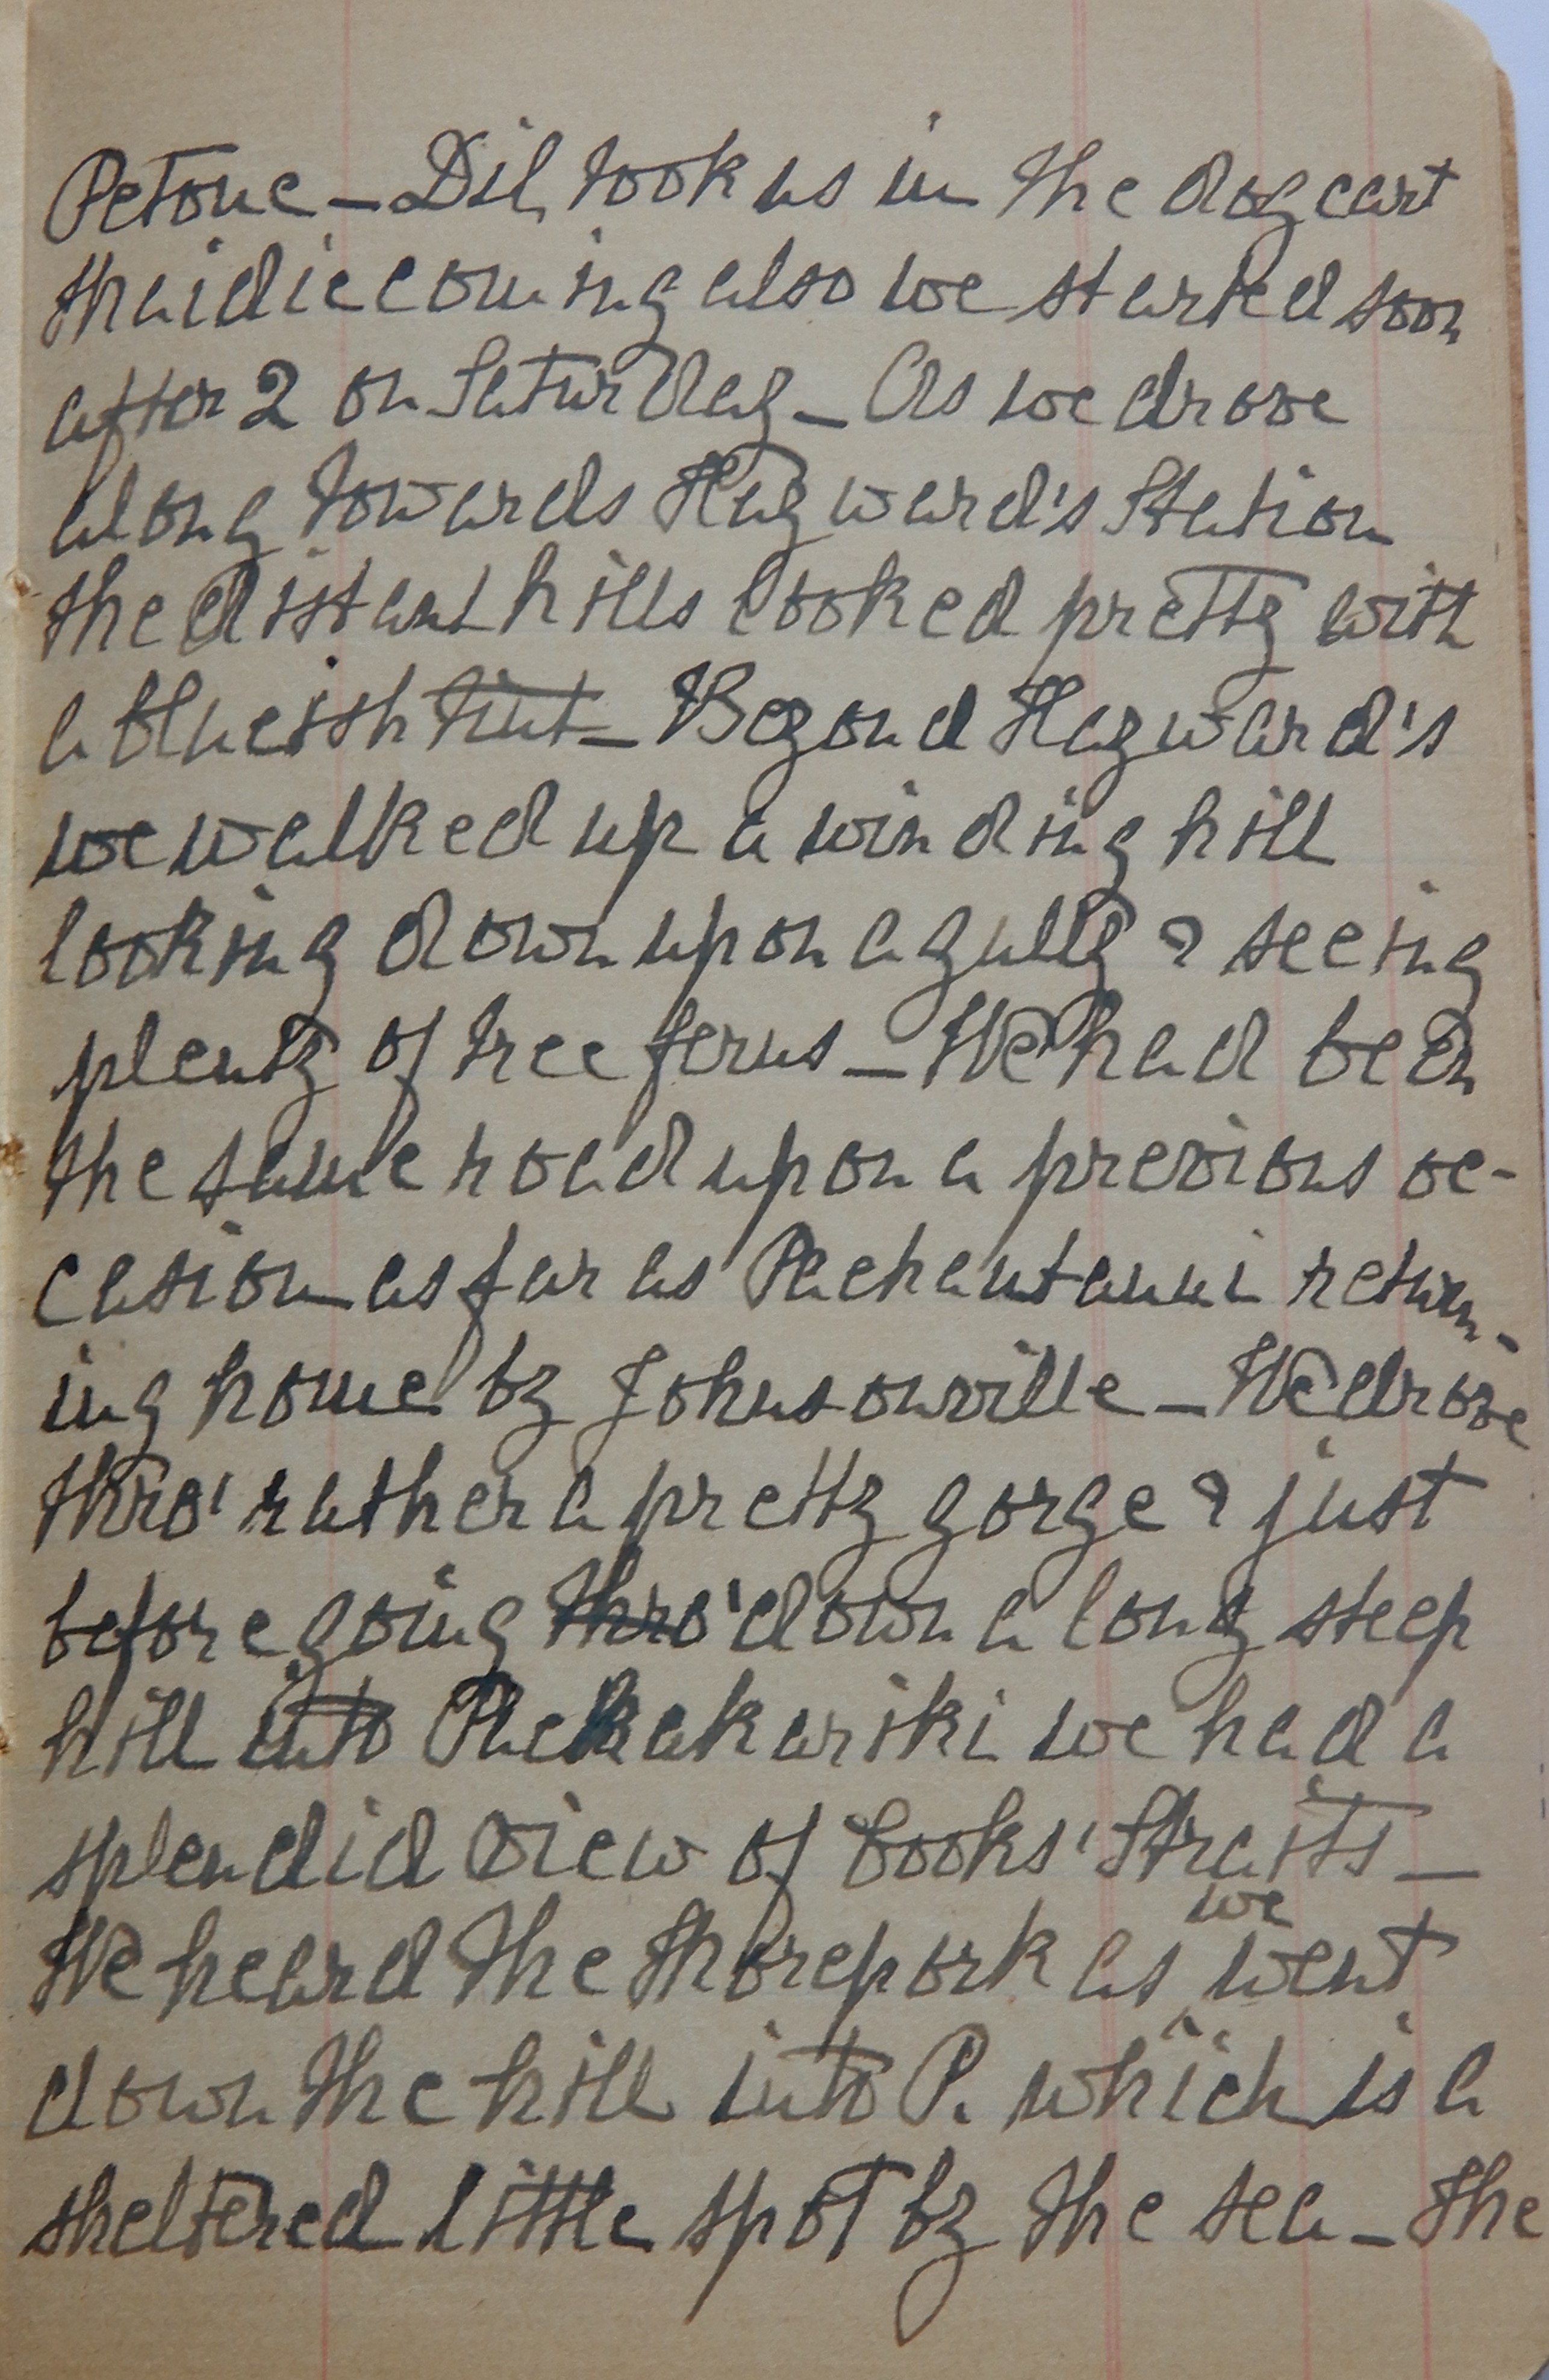 Petone – Dil, took us in the dogcart
Thaidie coming also we started soon
after 2 on Saturday – As we drove
along towards Hayward's Station
the distant hills looked pretty with
a blueish tint – Beyond Hayward's
we walked up a winding hill
looking down upon a gully & seeing
plenty of tree ferns – We had been
the same road upon a previous oc-
casion as far as Pachautanui return-
ing home by Johnsonville – We drove
thro' rather a pretty gorge & just
before going thro' down a long steep
hill into Paekakariki we had a
splendid view of Cooks' Straits –
We heard the Morepork as we went
down the hill into P. which is a
sheltered little spot by the sea – The